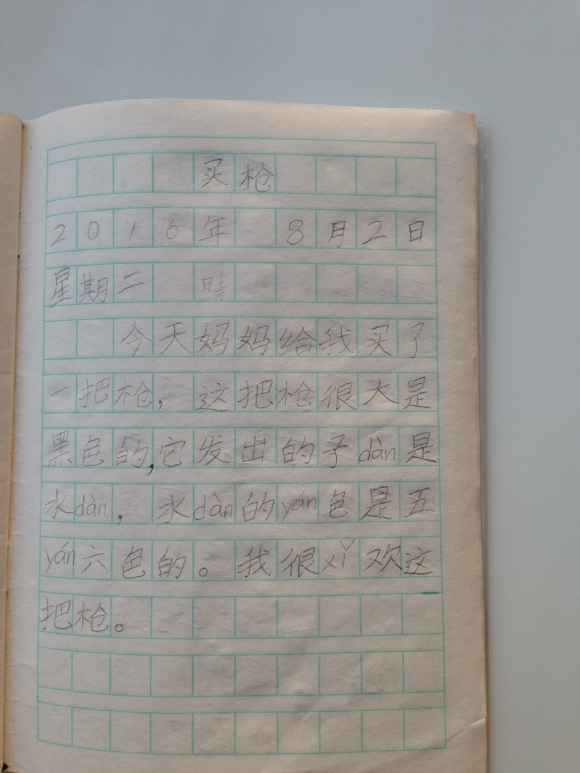 买枪
2016年 8月2日
星期二 晴
今天妈妈给我买了
一把枪，这把枪很大是
黑色的，它发出的子dàn是
水dàn，水dàn的yán色是五
yán六色的。我很xǐ欢这
把枪。